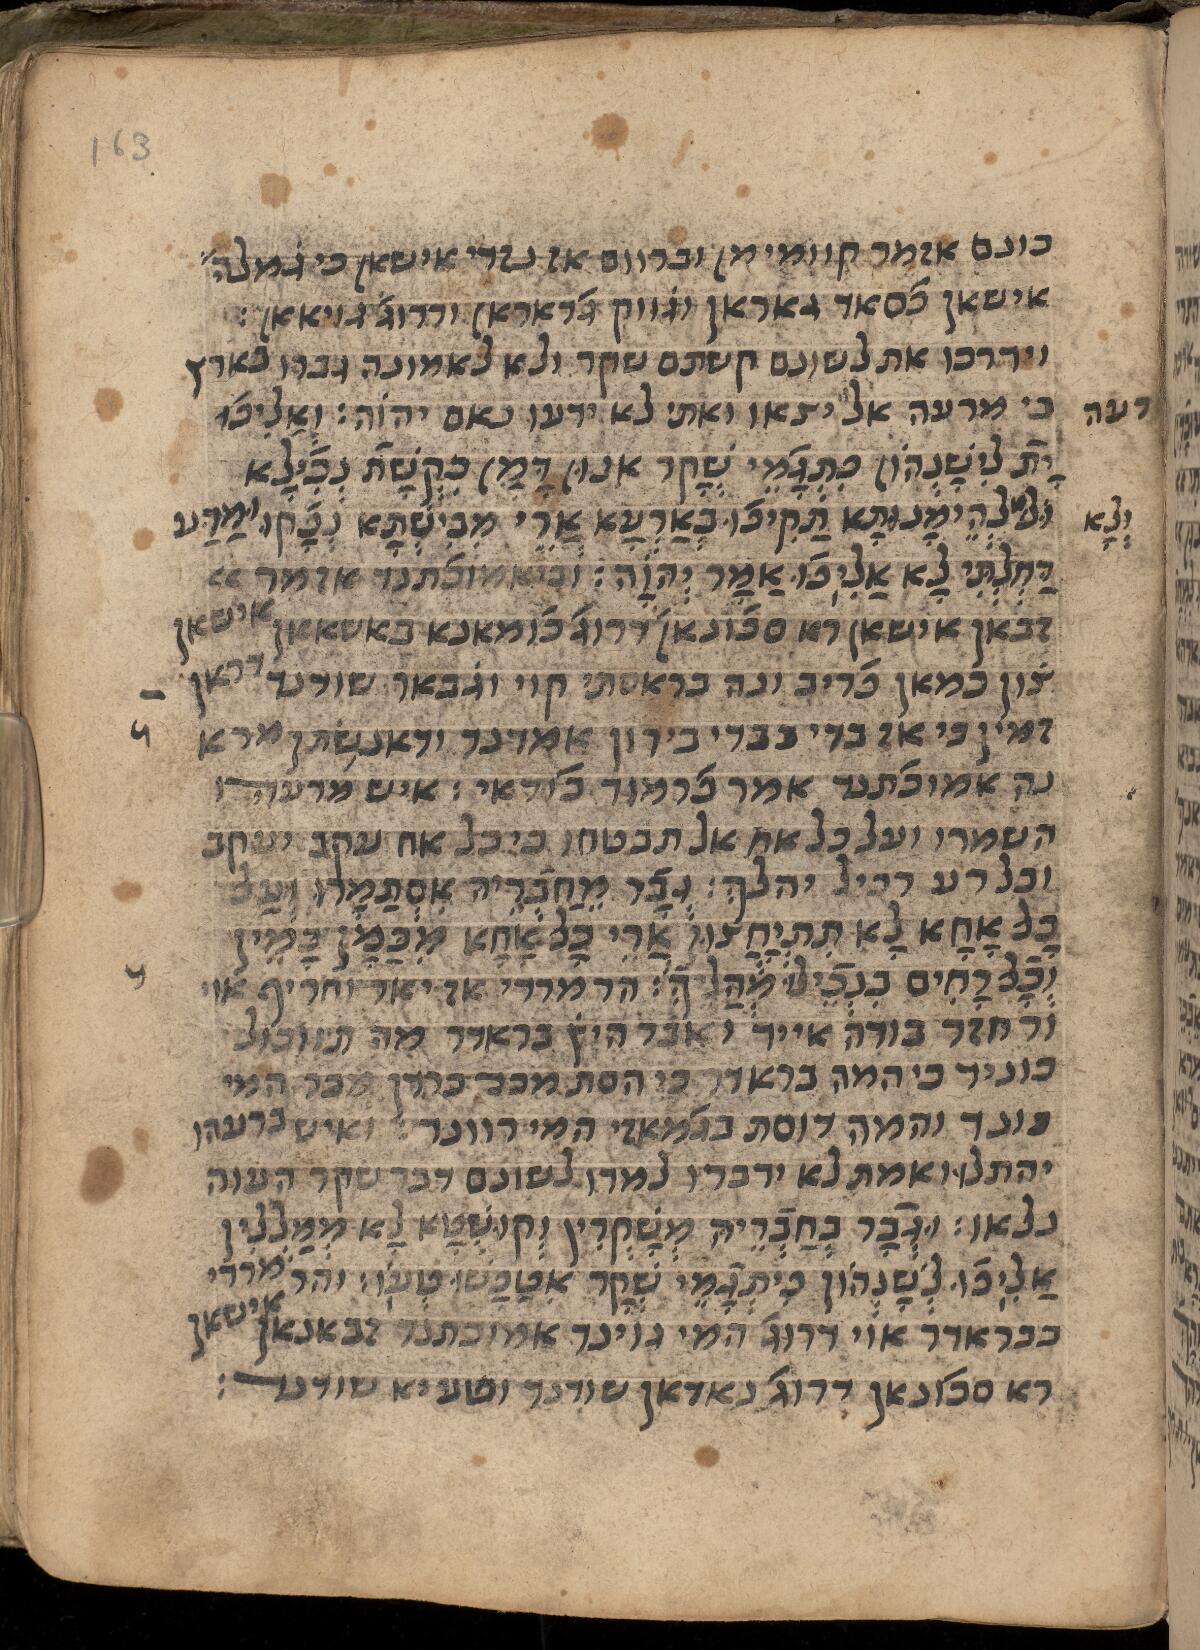 163
כונם אזמר קוומי מן וברוום אז נזדי אישאן כי גֹמלה
אישאן פֿסאד גאראן וגֹווק גֹדאראן ודרוגֹ גויאאן :
וידרכו את לשונם קשתם שקר ולא לאמונה גברו בארץ
רעה כי מרעה אל יצאו ואתי לא ידעו נאם יהוה: וְאַלִיפֿוּ
יָתֿ לִישָׁנְהוֹן פִּתְגָּמֵי שְׁקַר אנון דָּמַן כְּקַשְׁתָּא נְכִֿילָא
וְלָא לְהֵימָנוּתָא תַּקִיפֿוּ בְּאַרְעָא אֲרֵי מִבִּישְׁתָא נְפָקוּ וּמַדַּע
דַּחְלְתִּי לָא אַלִיפֿוּ אֲמַר יְהוָֹה: וביאמוכֿתנד אזמר
זבאן אישאן רא סכֿונאן דרוגֹ כֿומאנא באשאאן אישאן
צֹון כמאן פֿריב ונה בראסתי קוי וגֹבאר שודנד דראן
זמין כי אז בדי בבדי בירון אמדנד ודאנשתן מרא
נה אמוכֿתנד אמר פֿרמוד כֿודאי: איש מרעהו
השמרו ועל כל אח אל תבטחו כי כל אח עקב יעקב
וכל רע רכיל יהלך: גְּבַֿר מֵחַבְֿרֵיהּ אִסְתַּמָרוּ וְעַל
כָּל אָחָא לָא תִתְיַחֲצוּן אֲרֵי כָּל אָחָא מִכְּמָן כָּמֵין
וְכָֿל רָחִים כִּנְכֵֿיל מְהַלֵיךְ: הר מרדי אז יאר וחריף אוי
ור חזר בודה אייד ואבר היץֹ בראדר מה תווכול
כוניד כי המה בראדר כי הסת מכר כרדן מכר המי
כונד והמה דוסת בגֹמאזי המי רוונד: ואיש ברעהו
יהתלו ואמת לא ידברו למדו לשונם דבר שקר העוה
נלאו: וּגְבַֿר בְּחַבְֿרֵיהּ מְשַׁקְרִין וְקוּשְׁטָא לָא מְמַלְלִין
אַלִיפֿוּ לִשָׁנְהוֹן פִּיתְגָמֵי שְׁקַר אִטַפַּשׁוּ טְעוֹ: והר מרדי
בבראדר אוי דרוגֹ המי גוינד אמוכתנד זבאנאן אישאן
רא סכֿונאן דרוגֹ נאדאן שודנד וטעיא שודנד :